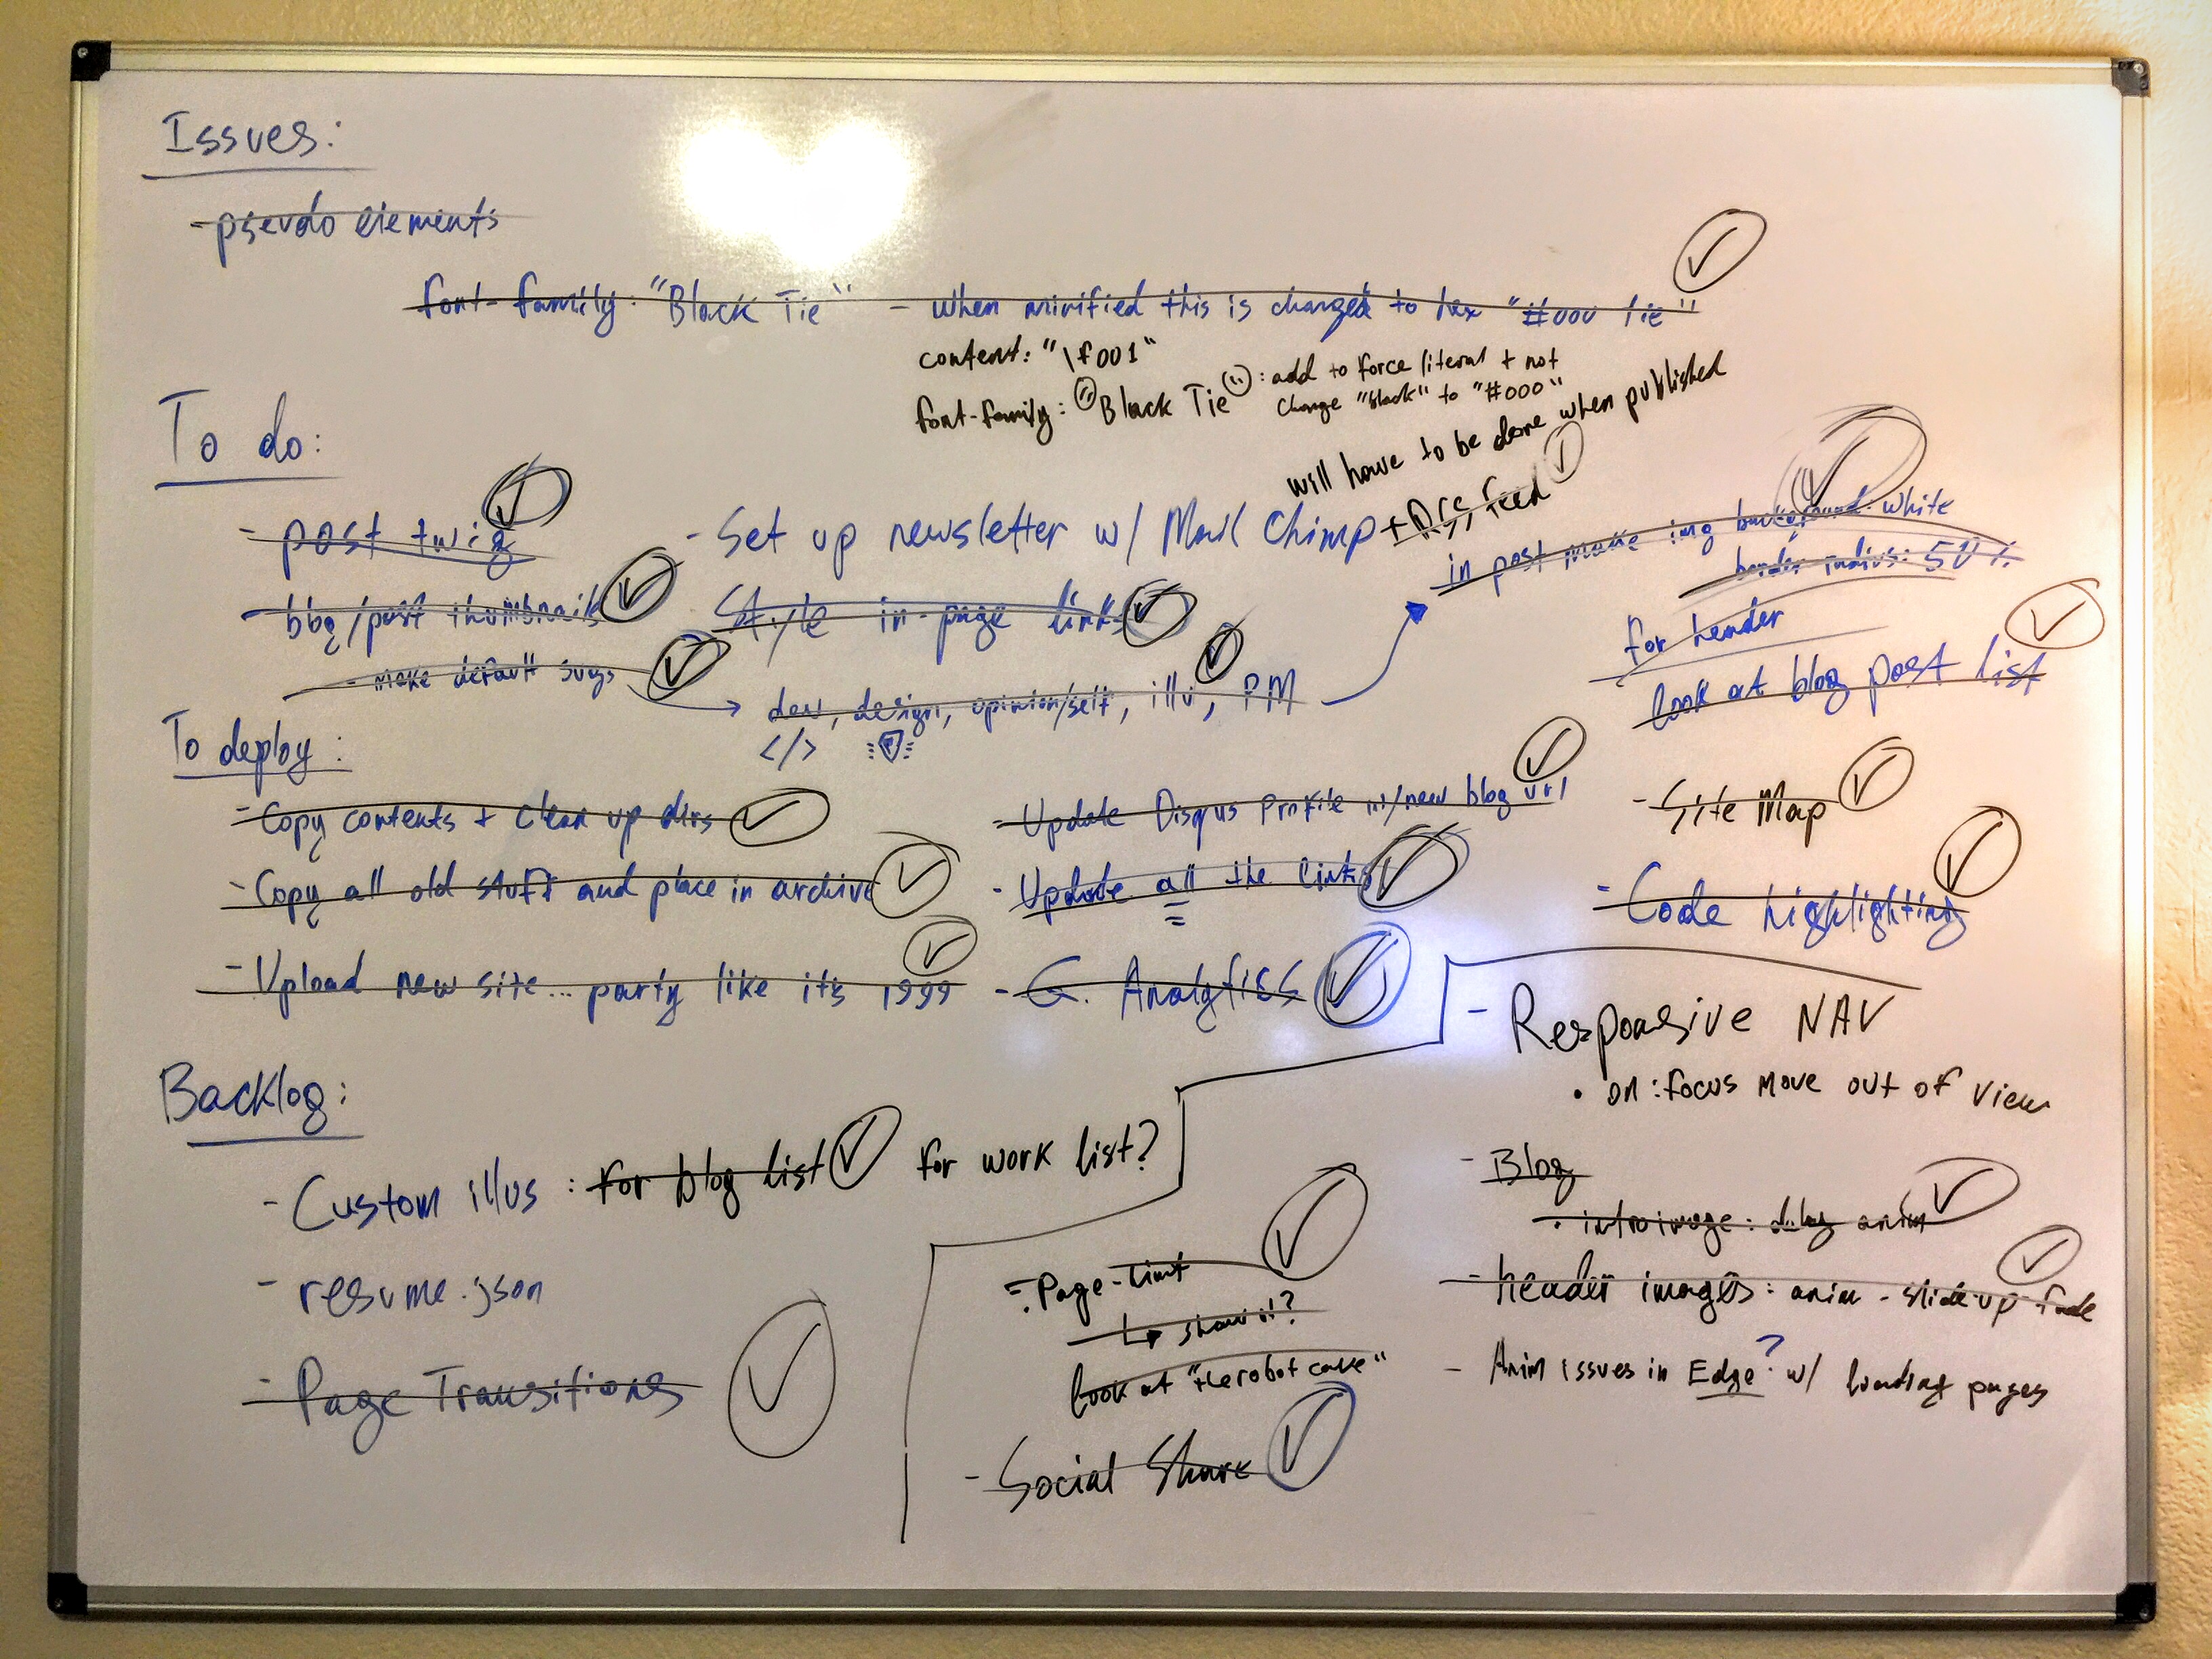 Issues:
- pseudo elements
font-family: "Black Tie" - when minified this is changed to hex "#000 Tie"
content: "\f001"
font-family: "Black Tie" : add to force literal + not
change "black" to "#000"
To do:
will have to be done when published
- post twig
- Set up newsletter w/ Mail Chimp + RSS feed
in post make img background: white
border radius: 50%
for header
- blog/post thumbnails
- Style in-page links
- make default svgs
dev, design, opinion/self, illu, PM
</>
look at blog post list
To deploy:
- Copy contents + clean up dirs
- Update Disqus Profile w/new blog url
- Site Map
- Copy all old stuff and place in archive
- Update all the links
- Code highlighting
- Upload new site... party like its 1999
- G. Analytics
- Responsive NAV
• on :focus move out of view
Backlog:
- Custom illus : for blog list for work list?
- resume.json
- Page Transitions
- Page-
show it?
look at "the robot cave"
- Social Share
- Blog
• intro image: delay anim
- header images: anim - slide-up-fade
- Anim issues in Edge? w/ loading pages